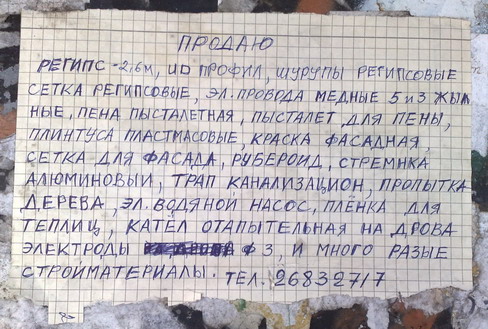 ПРОДАЮ
РЕГИПС -2,6м, UD ПРОФИЛ, ШУРУПЫ РЕГИПСОВЫЕ
СЕТКА РЕГИПСОВЫЕ, ЭЛ. ПРОВОДА МЕДНЫЕ 5 и 3 ЖЫЛ
НЫЕ, ПЕНА ПЫСТАЛЕТНАЯ, ПЫСТАЛЕТ ДЛЯ ПЕНЫ,
ПЛИНТУСА ПЛАСТМАСОВЫЕ, КРАСКА ФАСАДНАЯ,
СЕТКА ДЛЯ ФАСАДА, РУБЕРОИД, СТРЕМНКА
АЛЮМИНОВЫЙ, ТРАП КАНАЛИЗАЦИОН, ПРОПЫТКА
ДЕРЕВА, ЭЛ. ВОДЯНОЙ НАСОС, ПЛЁНКА ДЛЯ
ТЕПЛИЦ, КАТЁЛ ОТАПЫТЕЛЬНАЯ НА ДРОВА
ЭЛЕКТРОДЫ Ф 3, И МНОГО РАЗЫЕ
СТРОЙМАТЕРИАЛЫ. ТЕЛ. 26832717